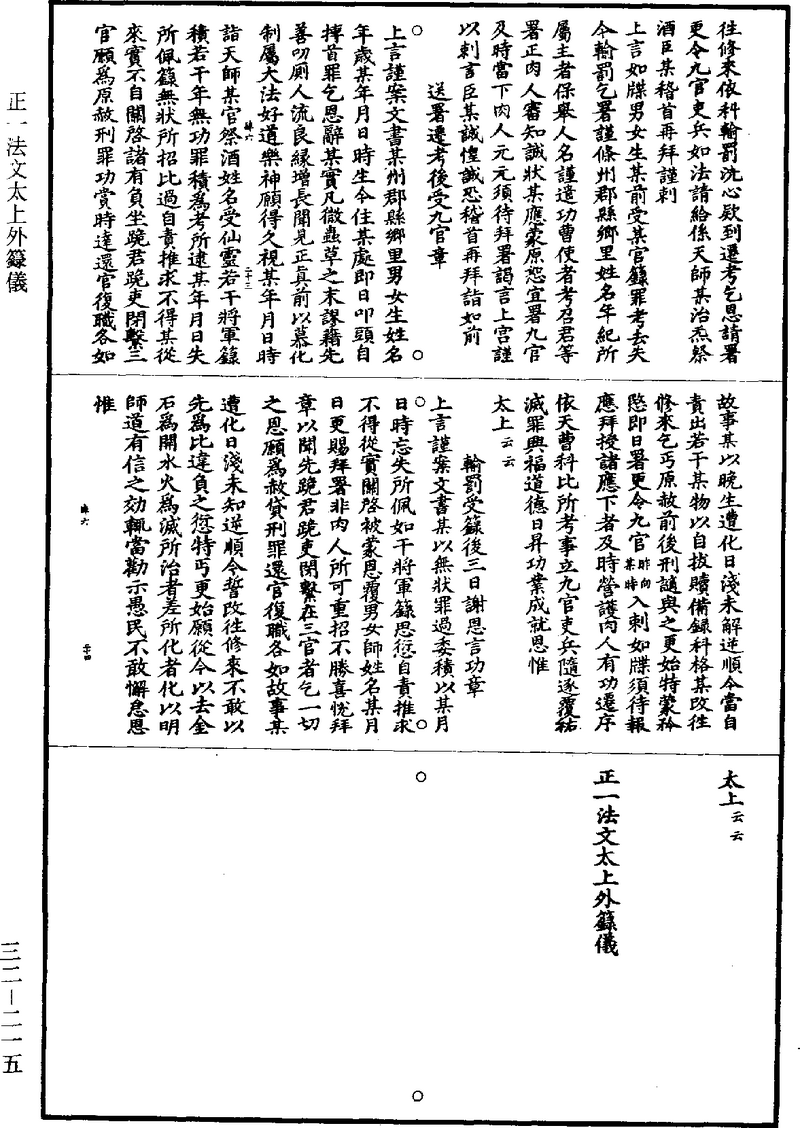 往修來依科輸罰沈心歘到遷考乞恩請署
更令九官吏兵如法請給係天師某治炁祭
酒臣某稽首再拜謹刺
上言如牒男女生某前受某官籙罪考去失
今輸罰乞署謹條州郡縣鄉里姓名年紀所
屬主者保舉人名謹遣功曹使者考召君等
署正肉人審知誠狀某應蒙原恕宜署九官
及時當下肉人元元須待拜署謁言上宮謹
以刺言臣某誠惶誠恐稽首再拜詣如前
送署遷考後受九官章
上言謹案文書某州郡縣鄉里男女生姓名
年歲某年月日時生今住某處即日叩頭自
摶首罪乞恩辭某實凡微蟲草之末謬藉先
善叨廁人流良緣增長聞見正真前以慕化
制屬大法好道樂神願得久視某年月日時
詣天師某官祭酒姓名受仙靈若干將軍籙
積若干年無功罪積為考所逮某年月日失
所佩籙無狀所招比過自責推求不得其從
來實不自關啓諸有負坐跪君跪吏閉繫三
官願為原赦刑罪功賞時達還官復職各如
故事某以晚生遭化日淺未解逆順今當自
責出若干某物以自拔贖備録科格某改往
修來乞丐原赦前後刑謫與之更始特蒙矜
愍即日署更令九官昨向某時入刺如牒須待報
應拜授諸應下者及時營護肉人有功遷序
依天曹科比所考事立九官吏兵隨逐覆祐
滅罪興福道德日昇功業成就恩惟
太上云云
輸罰受籙後三日謝恩言功章
上言謹案文書某以無狀罪過委積以某月
日時忘失所佩如干將軍籙思愆自責推求
不得從實關啓被蒙恩覆男女師姓名某月
日更賜拜署非肉人所可重招不勝喜悅拜
章以聞先跪君跪吏閉繫在三官者乞一切
之恩願為赦貸刑罪還官復職各如故事某
遭化日淺未知逆順今誓改往修來不敢以
先為比違負之愆特丐更始願從今以去金
石為開水火為滅所治者差所化者化以明
師道有信之効輒當勸示愚民不敢懈怠恩
惟
太上云云
正一法文太上外籙儀
正一法文太上外籙儀
三二—二一五